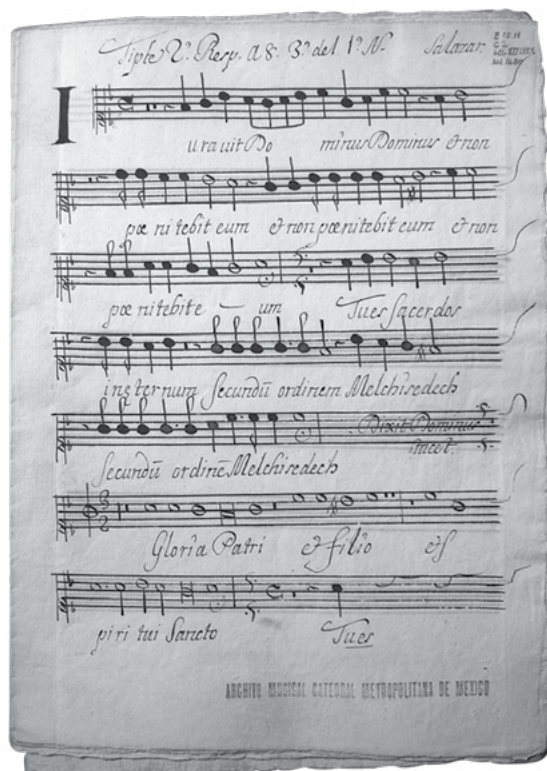 Tiple 2º. Resp. A 8. 3º. del 1º. N. Salazar.
I
uravit Do minus Dominus et non
pœ nitebit eum et non pœnitebit eum et non
pœ nitebit e um Tu es Sacerdos
in ęternum Secundū ordinem Melchisedech
Dixit Dominus
tacet.
Secundū ordinē Melchisedech
Gloria Patri et filio et S
piri tui Sancto Tu es
ARCHIVO MUSICAL CATEDRAL METROPOLITANA DE MEXICO